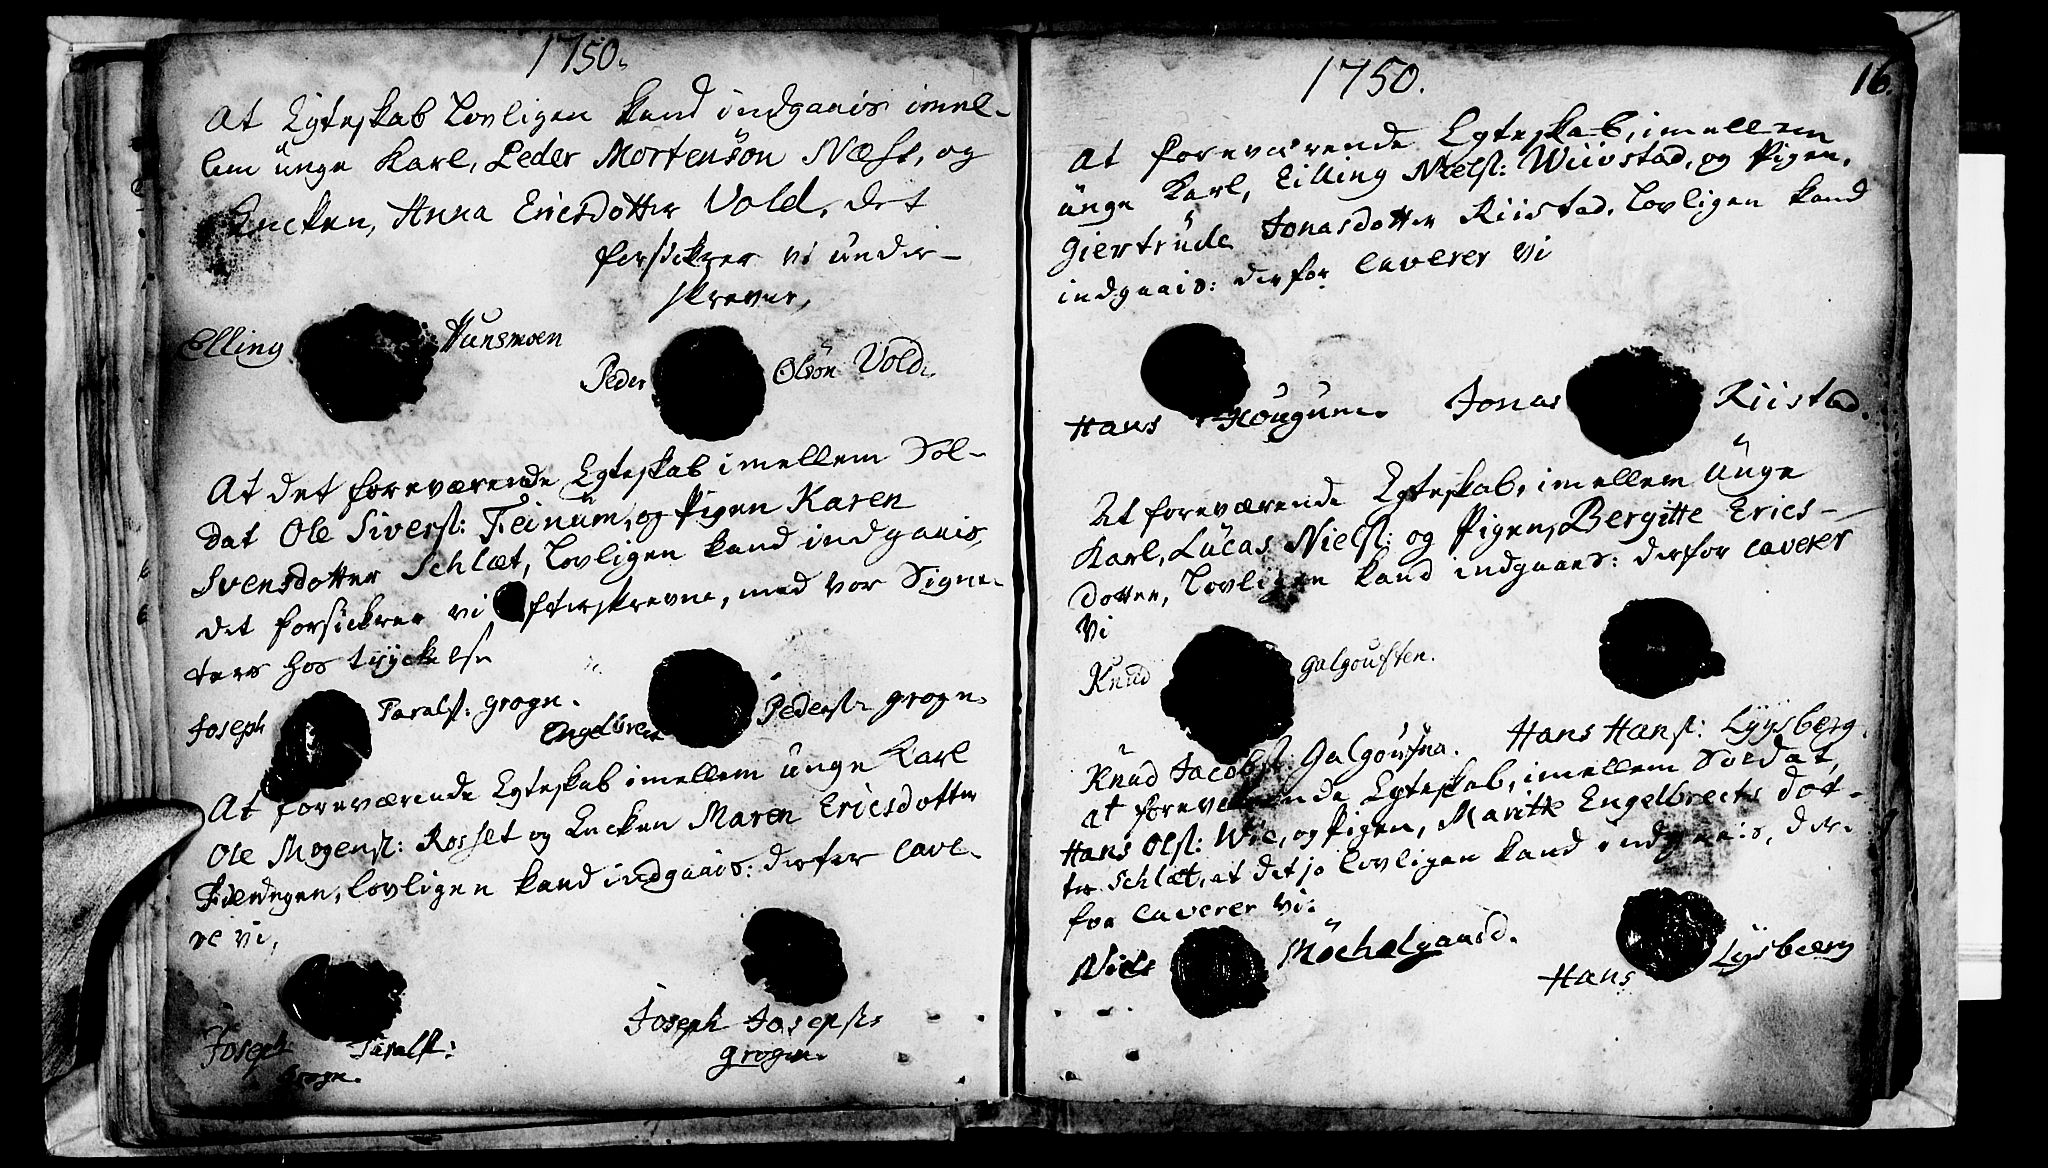 1750.
At Egteskab Lovligen kand indgaais imel-
lem unge Karl, Peder Mortensön Næss, og
Encken, Anna Ericsdotter Vold, det
forsickrer vi under-
skrevne,
Elling Hunsmoen
Peder Olsön Vold.
At det foreværende Egteskab imellem Sol-
dat Ole Siversl: Feinum, og Pigen Karen
Svensdotter Schlæt, Lovligen kand indgaais,
det forsickrer vi efterskrevne, med vor Signe-
ters hos tryckelse
Joseph Taralsl: grogn.
Engelbrect Pedersl: grogn.
At foreværende Egteskab imellem unge Karl
Ole Mogensl: Rosset og Encken Maren Ericsdotter
lovligen kand indgaais: derfor cave-
re vi,
Joseph Taralsl:
grogn.
Joseph Josephs:
grogn.
1750.
16.
At foreværende Egteskab, imellem
unge Karl, Eilling Nielsl: Wiivstad, og Pigen,
Giertrude Jonasdotter Riistad, Lovligen kand
indgaais: derfor caverer vi
Hans Hougum.
Jonas Riistad.
At foreværende Egteskab, imellem unge
Karl, Lucas Nielsl: og Pigen, Bergitte Erics-
dotter, Lovligen kand indgaaes: derfor caverer
vi
Knud Galgousten.
Knud Jacobsl: Galgousna.
Hans Hansl: Lyysberg.
At foreværende Egteskab, imellem Soldat,
Hans Olsl: Wie, og Pigen, Maritte Engelbrects dot-
ter Schlæt, at det jo lovligen kand indgaais, der-
for caverer vi:
Niels Möchelgaarsd.
Hans Lysbeerg